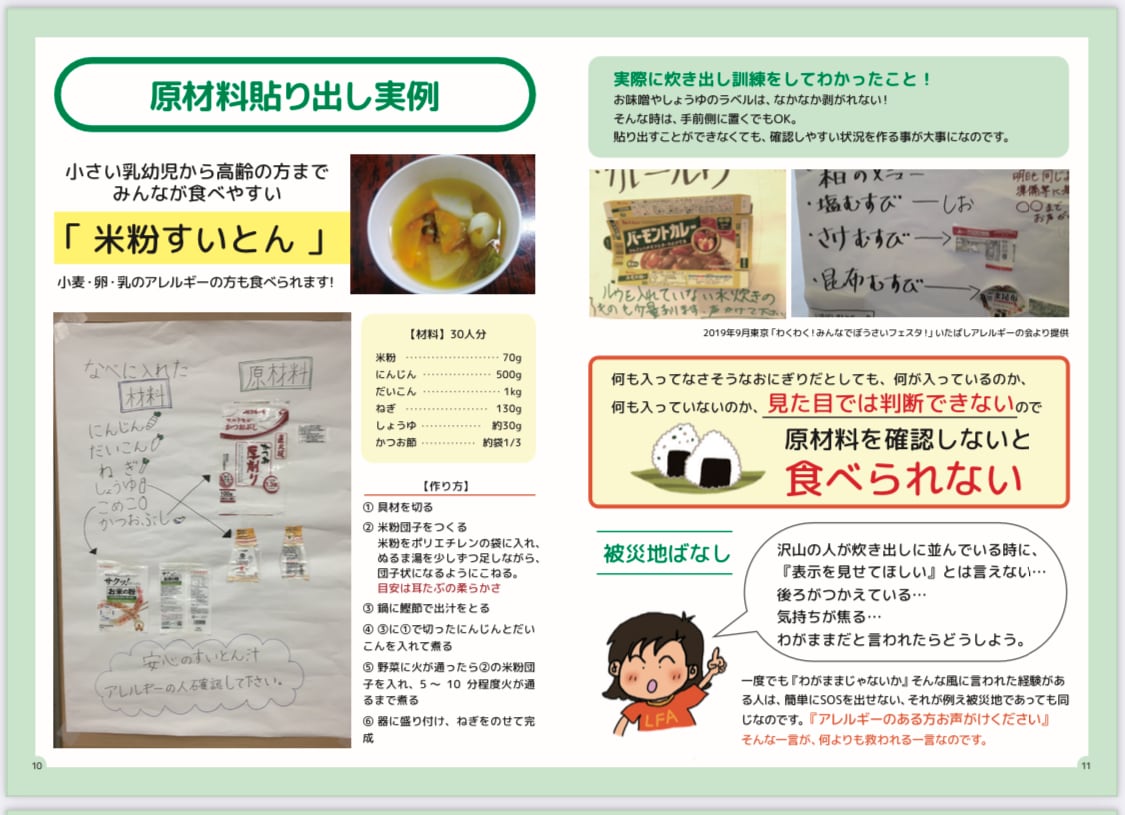 原材料貼り出し実例
小さい乳幼児から高齢の方まで
みんなが食べやすい
「 米粉すいとん 」
小麦・卵・乳のアレルギーの方も食べられます!
なべに入れた
材料
原材料
にんじん
だいこん
ねぎ
しょうゆ
こめこ
かつおぶし
厚削り
サクッ!
お米の粉
安心のすいとん汁
アレルギーの人も確認して下さい。
【材料】30人分
米粉 ………………… 70g
にんじん …………… 500g
だいこん ……………… 1kg
ねぎ ………………… 130g
しょうゆ ………… 約30g
かつお節 ……… 約袋1/3
【作り方】
① 具材を切る
② 米粉団子をつくる
米粉をポリエチレンの袋に入れ、
ぬるま湯を少しずつ足しながら、
団子状になるようにこねる。
目安は耳たぶの柔らかさ
③ 鍋に鰹節で出汁をとる
④ ③に①で切ったにんじんとだい
こんを入れて煮る
⑤ 野菜に火が通ったら②の米粉団
子を入れ、5 ~ 10 分程度火が通
るまで煮る
⑥ 器に盛り付け、ねぎをのせて完
成
10
実際に炊き出し訓練をしてわかったこと!
お味噌やしょうゆのラベルは、なかなか剥がれない!
そんな時は、手前側に置くでもOK。
貼り出すことができなくても、確認しやすい状況を作る事が大事になのです。
バーモントカレー
ルウを入れていない水炊きの
ものも少量あります。声かけて下さい
・塩むすび ― しお
・さけむすび
・昆布むすび
明日も同じ
準備等に
〇〇まで
お声が
2019年9月東京「わくわく!みんなでぼうさいフェスタ!」いたばしアレルギーの会より提供
何も入ってなさそうなおにぎりだとしても、何が入っているのか、
何も入っていないのか、見た目では判断できないので
原材料を確認しないと
食べられない
被災地ばなし
沢山の人が炊き出しに並んでいる時に、
『表示を見せてほしい』とは言えない…
後ろがつかえている…
気持ちが焦る…
わがままだと言われたらどうしよう。
LFA
一度でも『わがままじゃないか』そんな風に言われた経験があ
る人は、簡単にSOSを出せない、それが例え被災地であっても同
じなのです。『アレルギーのある方お声がけください』
そんな一言が、何よりも救われる一言なのです。
11